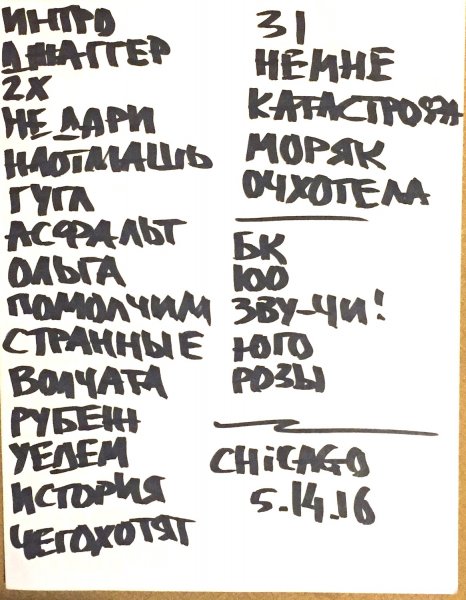 ИНТРО
ДЖАГГЕР
2Х
НЕ ДАРИ
НАОТМАШЬ
ГУГЛ
АСФАЛЬТ
ОЛЬГА
ПОМОЛЧИМ
СТРАННЫЕ
ВОЛЧАТА
РУБЕЖ
УЕДЕМ
ИСТОРИЯ
ЧЕГОХОТЯТ
31
НЕМНЕ
КАТАСТРОФА
МОРЯК
ОЧХОТЕЛА
БК
100
ЗВУ-ЧИ!
ЮГО
РОЗЫ
CHiCAGO
5.14.16